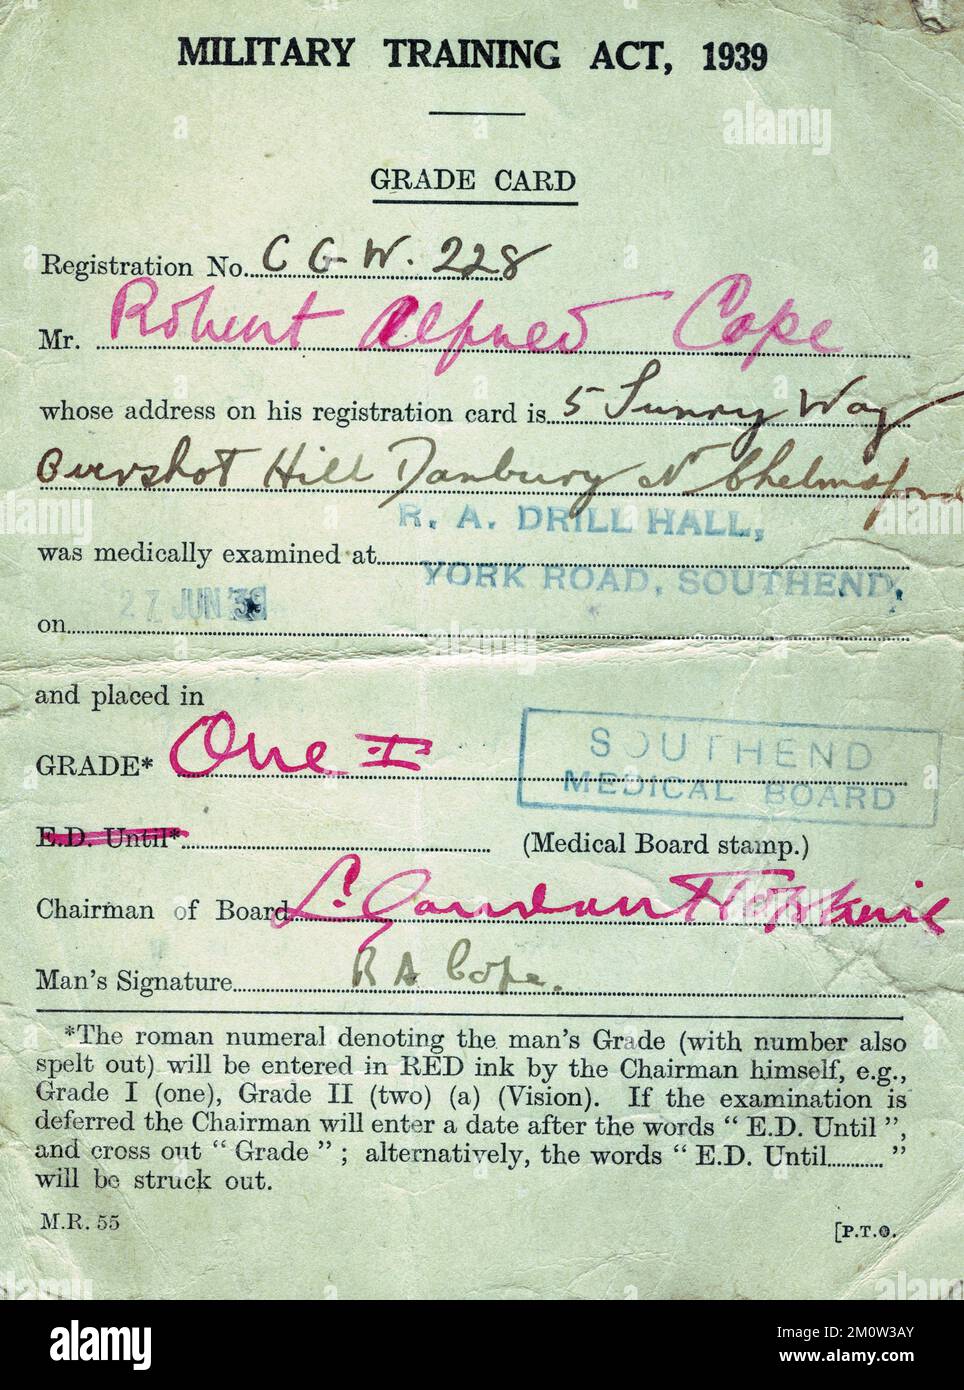 MILITARY TRAINING ACT, 1939
GRADE CARD
Registration No. C G W. 228
Mr. Robert Alfred Cope
whose address on his registration card is 5 Sunny Way
Hill Danbury Nr Chelmsford
R. A. DRILL HALL,
was medically examined at
YORK ROAD, SOUTHEND.
27 JUN 39
on
and placed in
GRADE* One I
SOUTHEND
MEDICAL BOARD
E.D. Until*
(Medical Board stamp.)
Chairman of Board
Man's Signature R A Cope.
*The roman numeral denoting the man's Grade (with number also
spelt out) will be entered in RED ink by the Chairman himself, e.g.,
Grade I (one), Grade II (two) (a) (Vision). If the examination is
deferred the Chairman will enter a date after the words “ E.D. Until ”,
and cross out “ Grade ” ; alternatively, the words “ E.D. Until............ ”
will be struck out.
M.R. 55
[P.T.O.
alamy
Image ID: 2M0W3AY
www.alamy.com